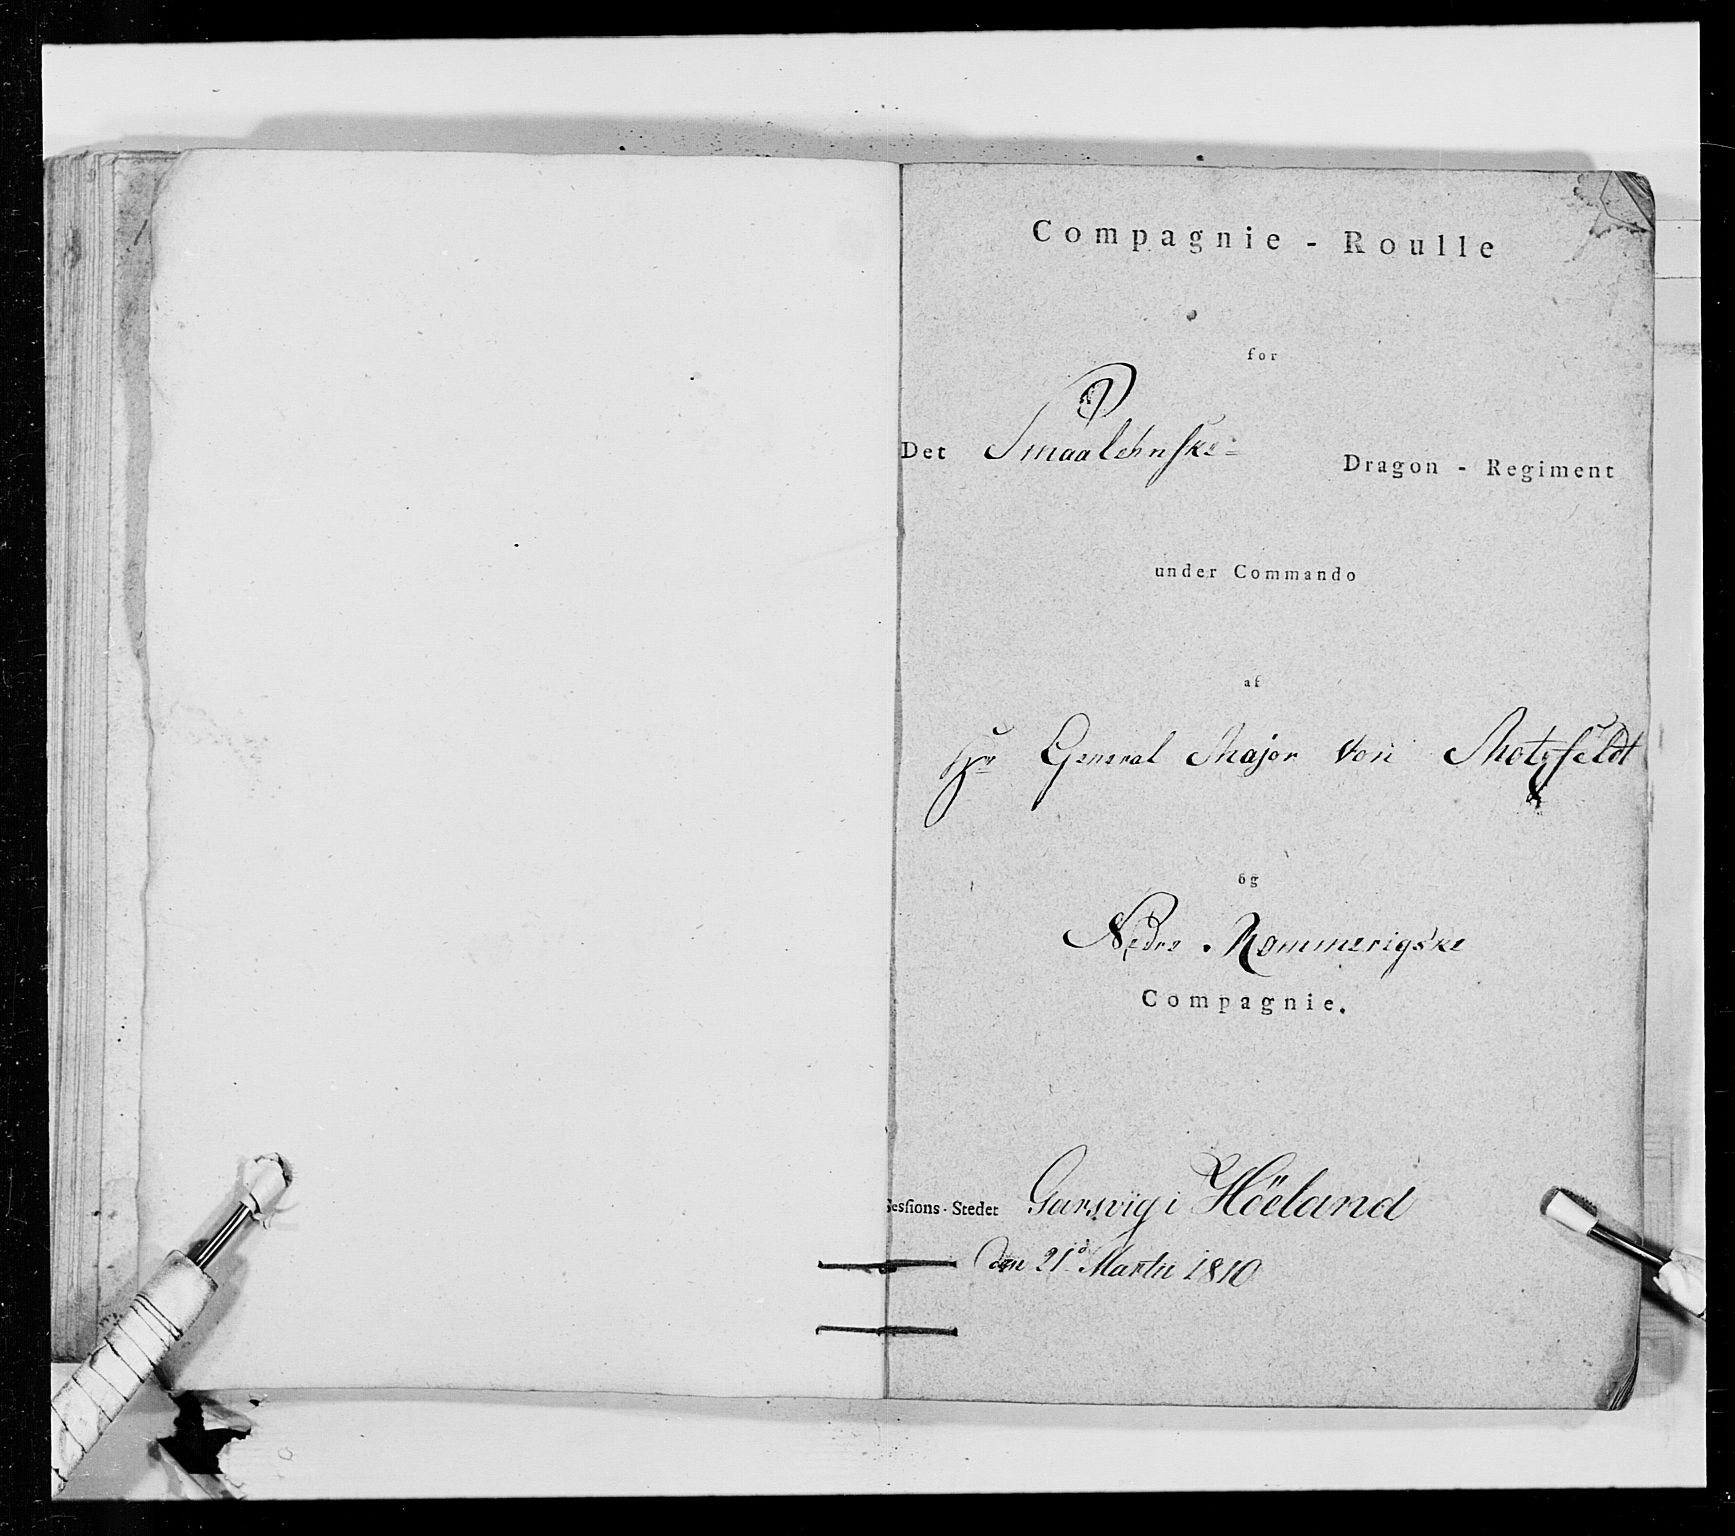 Compagnie - Roulle
for
Det Smaalehnske Dragon - Regiment
under Commando
af
Hr General Major Von Motzfeldt
og
Nedre Rommerigske
Compagnie.
Sessions-Stedet Garsvig i Höeland
den 21d Martii 1810